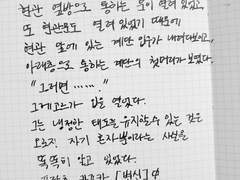 현관 옆방으로 통하는 문이 열려 있었고,
또 현관문도 열려 있었기 때문에
현관 앞에 있는 계단 입구가 내려다보이고,
아래층으로 통하는 계단의 첫머리가 보였다.
"그러면 ……."
그레고르가 입을 열었다.
그는 냉정한 태도를 유지할 수 있는 것은
오로지 자기 혼자뿐이라는 사실을
똑똑히 알고 있었다.
카프카 [변신]